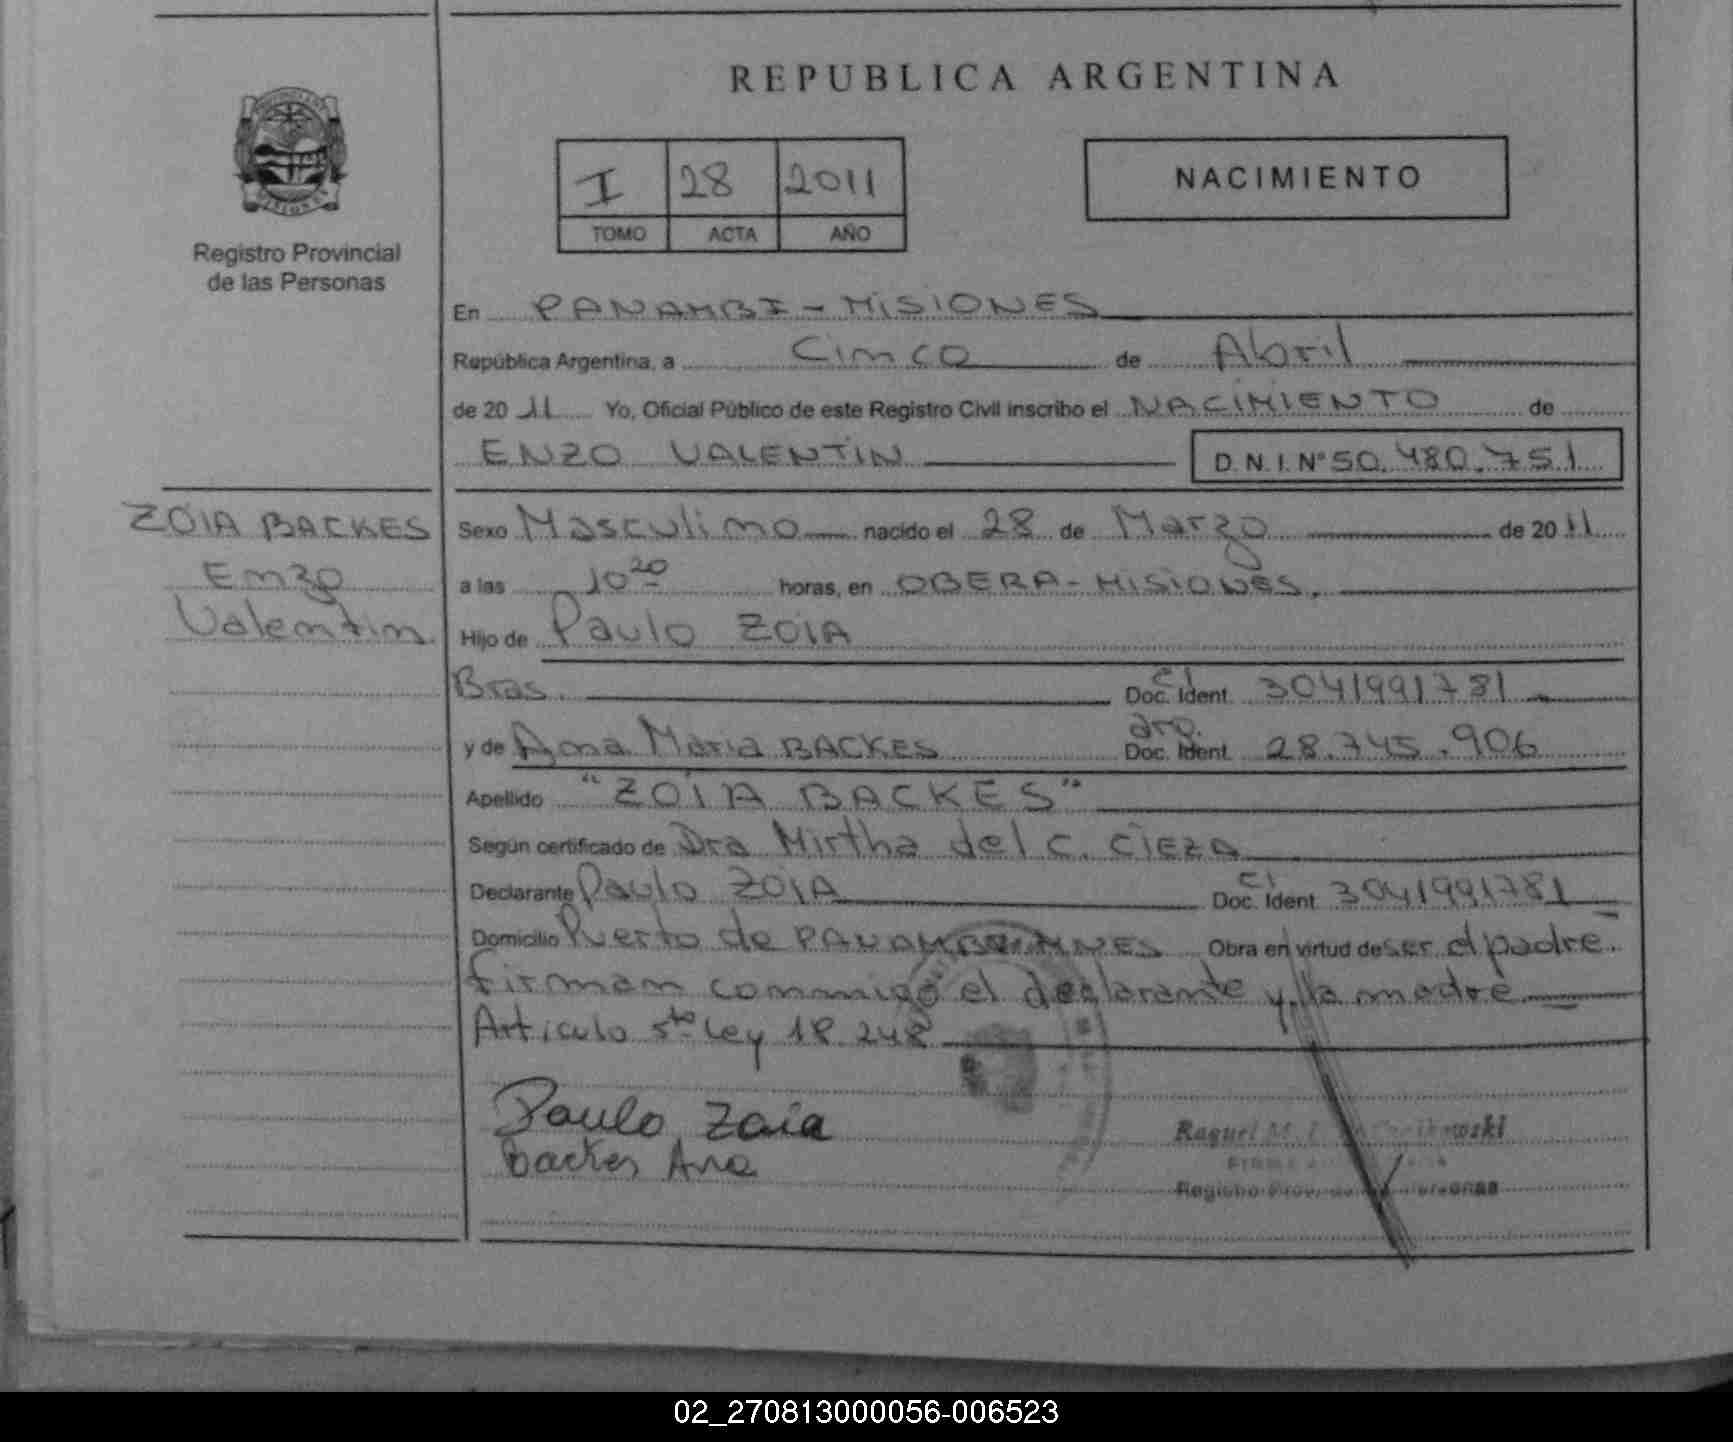 REPUBLICA ARGENTINA
I 28 2011
TOMO ACTA AÑO
NACIMIENTO
Registro Provincial
de las Personas
En PANAMBI - MISIONES
República Argentina, a Cinco de Abril
de 20 11 Yo, Oficial Público de este Registro Civil inscribo el NACIMIENTO de
ENZO VALENTIN D.N.I. N° 50.480.751
ZOIA BACKES
Enzo
Valentin
Sexo Masculino nacido el 28 de Marzo de 20 11
a las 10 20 horas, en OBERA - MISIONES.
Hijo de Paulo ZOIA
Bras. Doc. Ident. CI 3041991781
y de Ana Maria BACKES Doc. Ident. arg. 28.745.906
Apellido "ZOIA BACKES"
Según certificado de Dra Mirtha del C. CIEZA
Declarante Paulo ZOIA Doc. Ident. CI 3041991781
Domicilio Puerto de PANAMBI MNES Obra en virtud de ser el padre
firman conmigo el declarante y la madre
Articulo 5to Ley 18.248
Paulo Zoia
Backes Ana
Raquel M.
Registro Personas
02_270813000056-006523